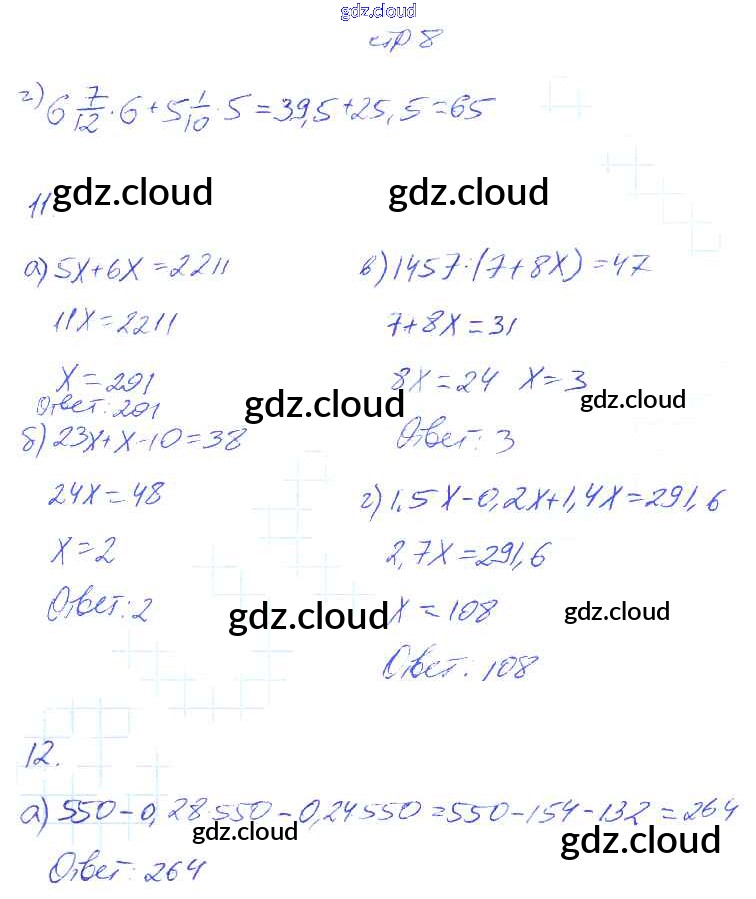 gdz.cloud
стр 8
г) 6 7/12 · 6 + 5 1/10 · 5 = 39,5 + 25,5 = 65
11. gdz.cloud gdz.cloud
а) 5x + 6x = 2211
11x = 2211
x = 201
Ответ: 201
gdz.cloud
б) 23x + x - 10 = 38
24x = 48
x = 2
Ответ: 2
gdz.cloud
в) 1457 : (7 + 8x) = 47
7 + 8x = 31
8x = 24 x = 3
gdz.cloud
Ответ: 3
г) 1,5x - 0,2x + 1,4x = 291,6
2,7x = 291,6
x = 108
gdz.cloud
Ответ: 108
12.
а) 550 - 0,28 · 550 - 0,24 550 = 550 - 154 - 132 = 264
gdz.cloud gdz.cloud
Ответ: 264